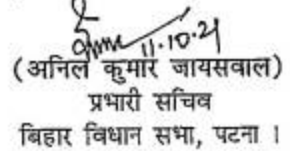 11.10.21
(अनिल कुमार जायसवाल)
प्रभारी सचिव
बिहार विधान सभा, पटना ।